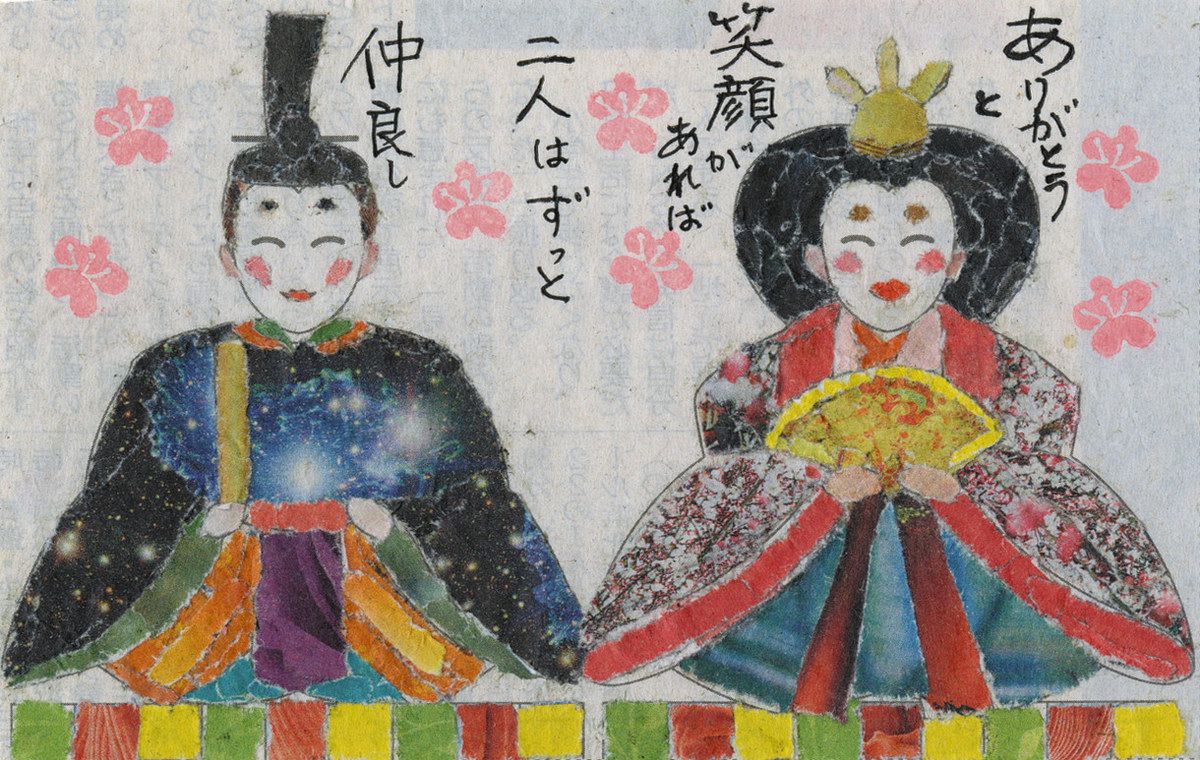 ありがとう
と
笑顔が
あれば
二人はずっと
仲良し